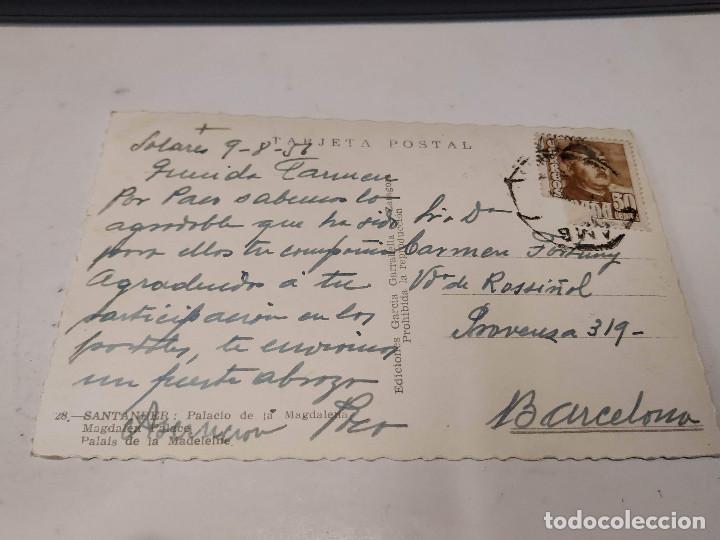 +
TARJETA POSTAL
Solares 9-8-51
Querida Carmen
Por Paco sabemos lo
agradable que ha sido
para ellos tu compañia
Agradecidos á tu
participación en los
postales, te enviamos
un fuerte abrazo
Asunción Paco
Ediciones García Garrabella - Zaragoza
Prohibida la reproducción
Sr. Da
Carmen Fortuny
Vda de Rossiñol
Provenza 319-
Barcelona
28.—SANTANDER: Palacio de la Magdalena
Magdalen Palace
Palais de la Madeleine
50
AMB
todocoleccion
todocoleccion.net